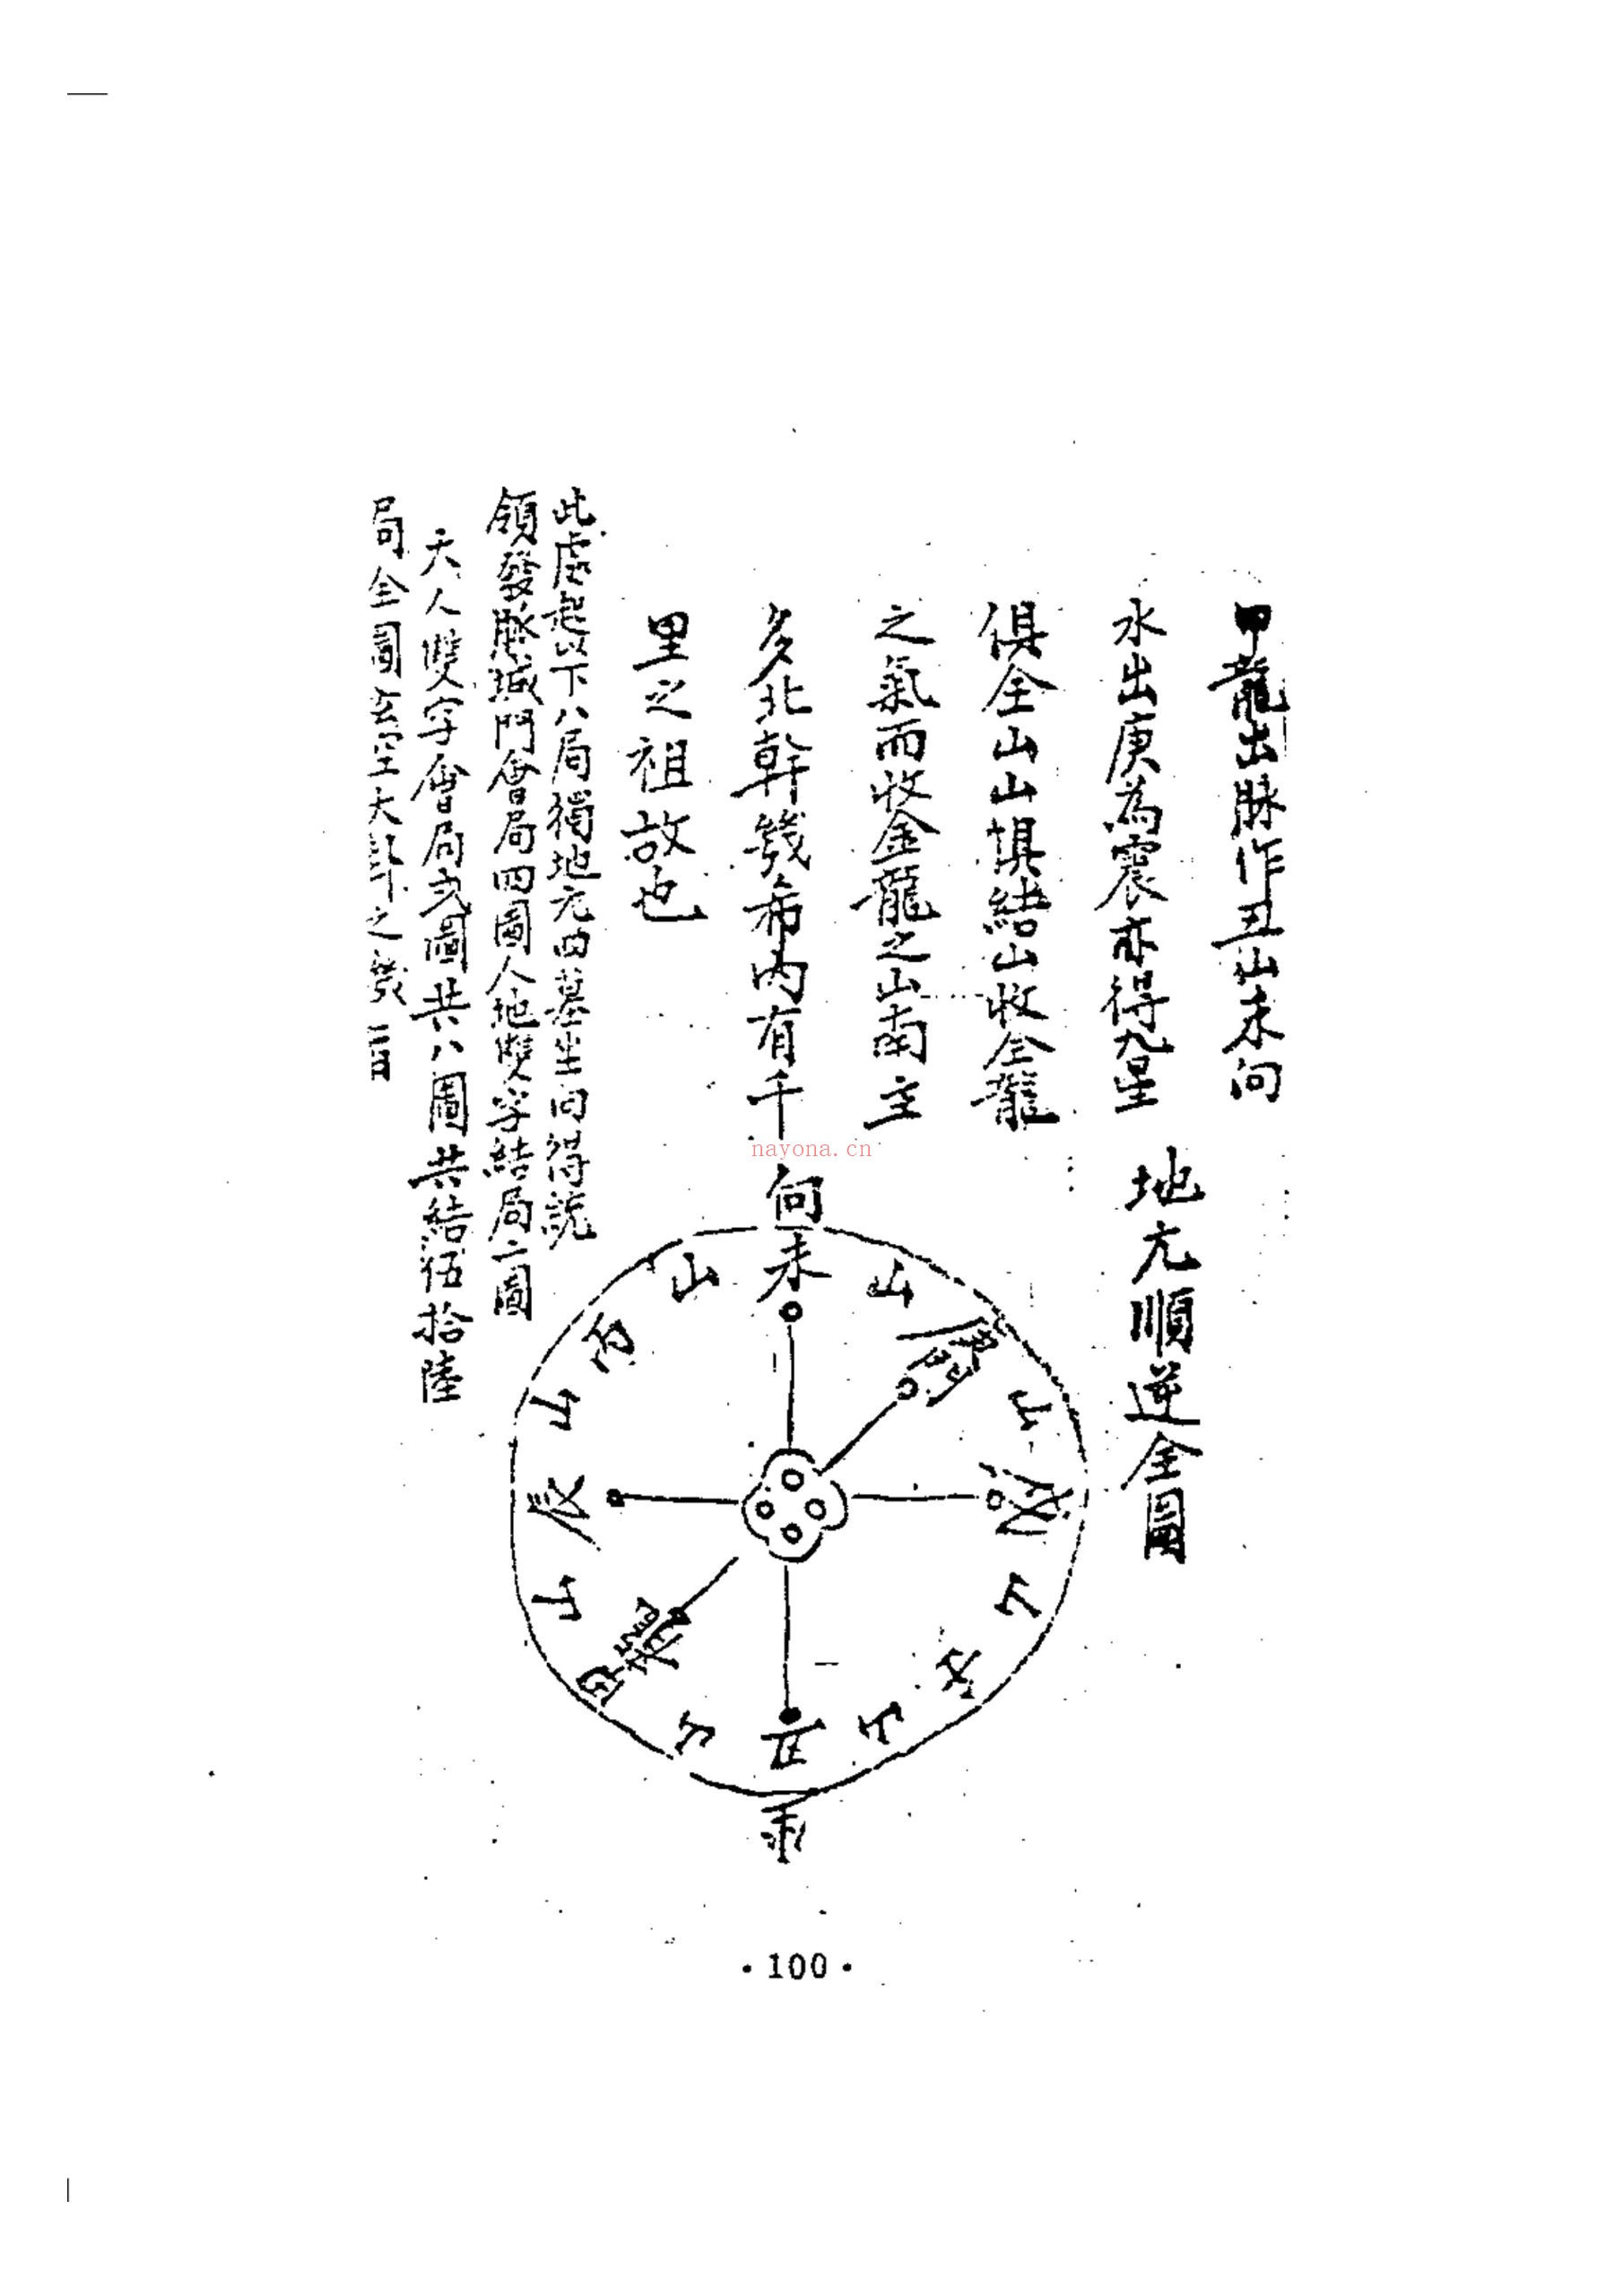 甲龍出脉作丑山未向
水出庚為震亦得九星
俱全山山俱結山收全龍
之氣而收金龍之山南主
多北幹幾希內有千
里之祖故也
地元順逆全圖
此處起以下八局獨地元四墓坐向得說
領發脉城門會局四圖人地雙字結局二圖
天人雙字會局弍圖共八圖共結伍拾陸
局全圖玄空大卦之幾
向
未
山
山
山
辰
山
山
甲龍
山
丑
山
山
山
水
nayona.cn
·100·